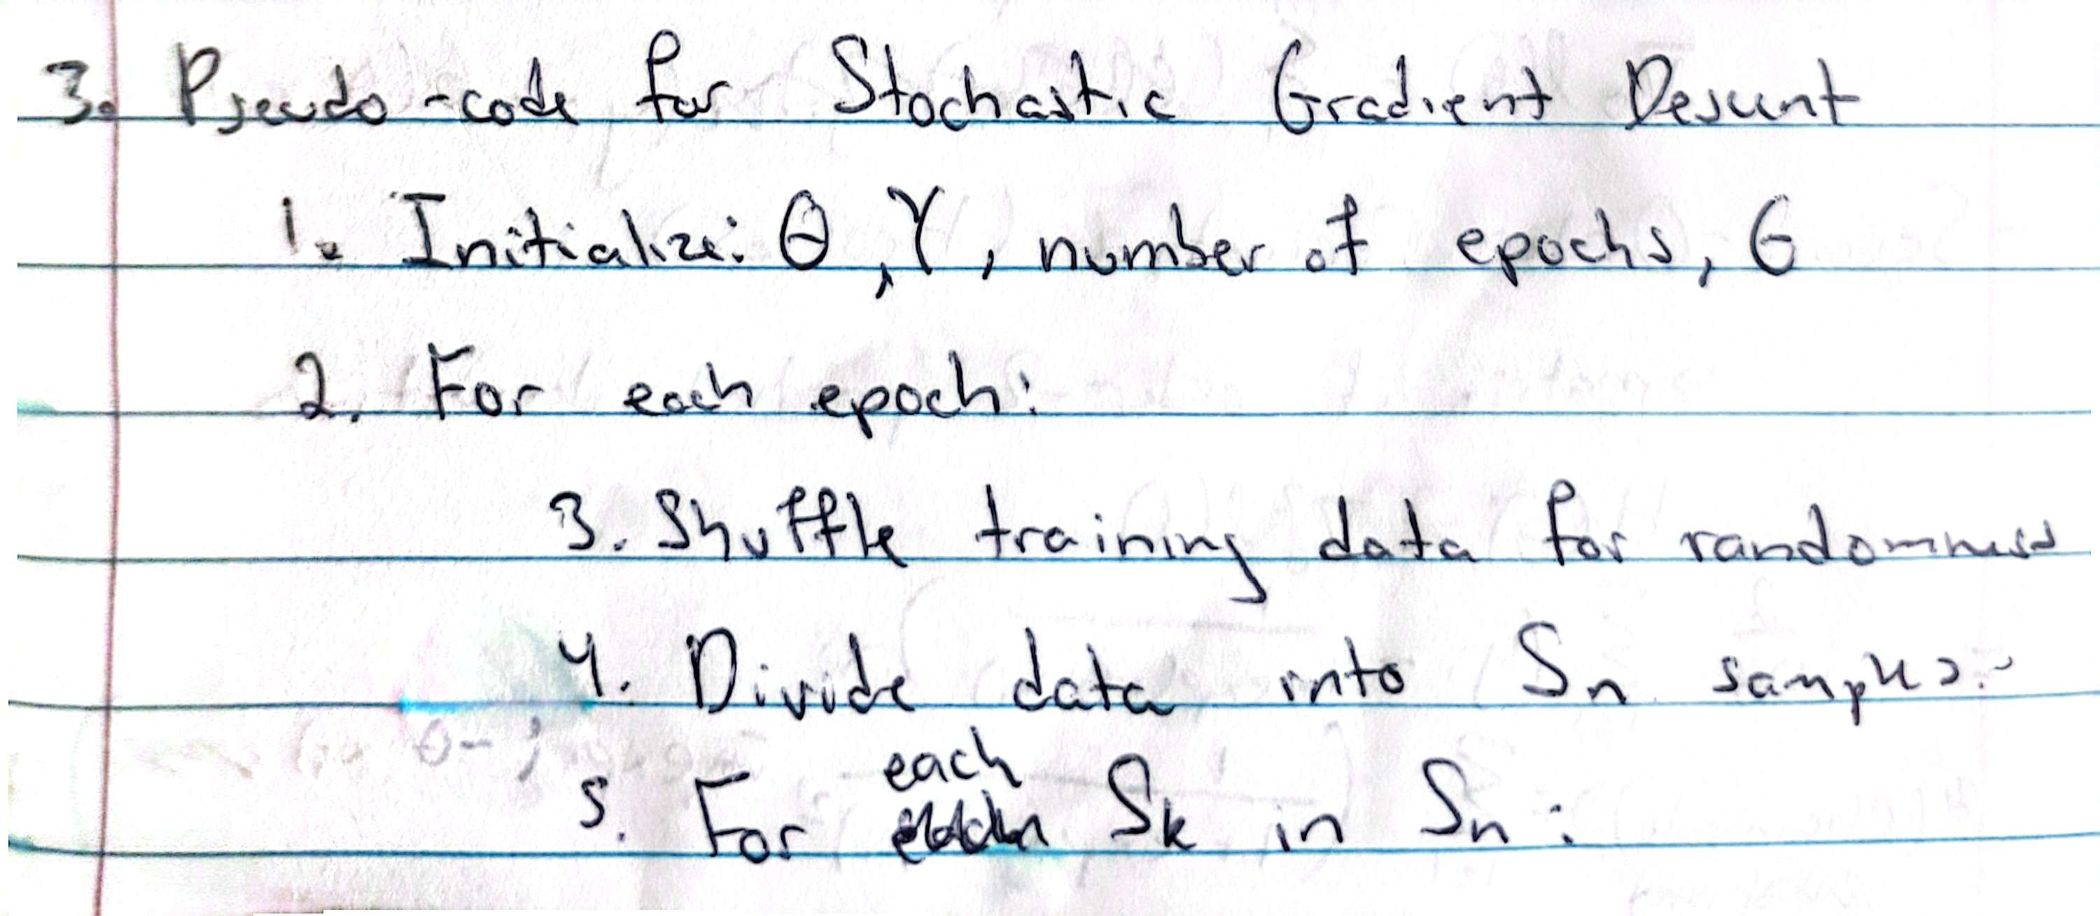 3. Pseudo-code for Stochastic Gradient Descent
1. Initialize: θ, γ, number of epochs, G
2. For each epoch:
3. Shuffle training data for randomness
4. Divide data into Sn samples.
each
5. For Sk in Sn: